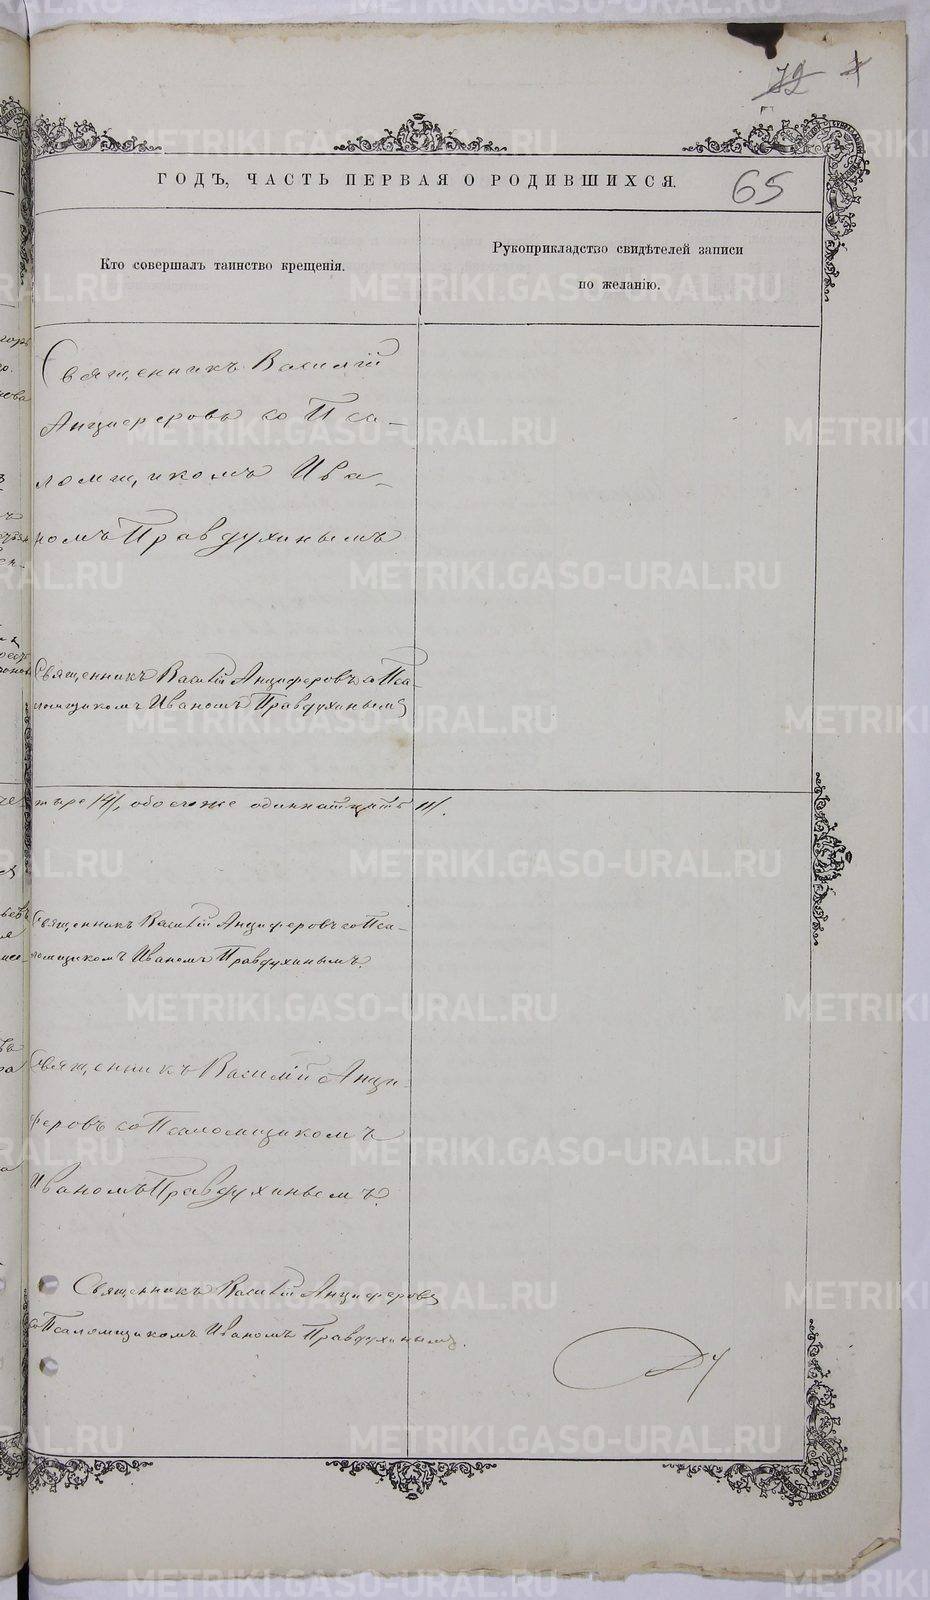 72
65
ГОДЪ, ЧАСТЬ ПЕРВАЯ О РОДИВШИХСЯ.
Кто совершалъ таинство крещенія.
Рукоприкладство свидѣтелей записи
по желанію.
Священникъ Василій
Анциферовъ со Пса-
ломщикомъ Ива-
номъ Правдухинымъ
Священникъ Василій Анциферовъ со Пса-
ломщикомъ Иваномъ Правдухинымъ
тыре /4/, обоего же одиннатцать /11/.
Священникъ Василій Анциферовъ со Пса-
ломщикомъ Иваномъ Правдухинымъ.
Священникъ Василій Анци-
феровъ со Псаломщикомъ
Иваномъ Правдухинымъ.
Священникъ Василій Анциферовъ
со Псаломщикомъ Иваномъ Правдухинымъ.
METRIKI.GASO-URAL.RU